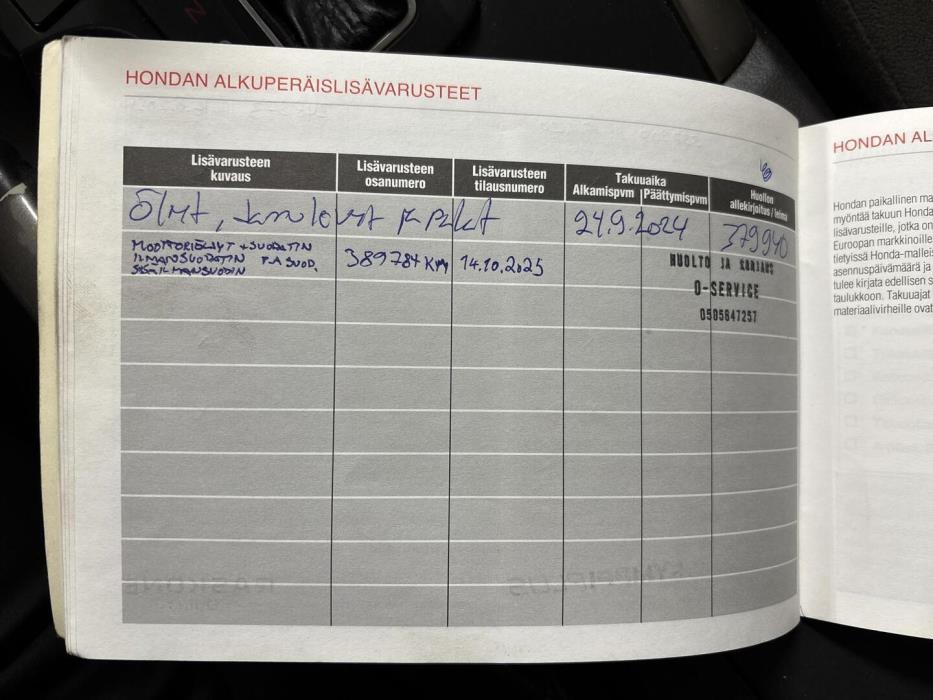 HONDAN ALKUPERÄISLISÄVARUSTEET
Lisävarusteen kuvaus
Lisävarusteen osanumero
Lisävarusteen tilausnumero
Takuuaika
Alkamispvm
Päättymispvm
Huollon allekirjoitus / leima
Öljyt,
24.9.2024
379940
MOOTTORIÖLJYT + SUODATIN
ILMANSUODATIN P.A SUOD.
SISÄILMANSUODIN
389784 KM
14.10.2025
HUOLTO JA KORJAUS
O-SERVICE
0505647257
HONDAN AL
Hondan paikallinen ma
myöntää takuun Honda
lisävarusteille, jotka on
Euroopan markkinoille
tietyissä Honda-malleis
asennuspäivämäärä ja
tulee kirjata edellisen s
taulukkoon. Takuuajat
materiaalivirheille ovat